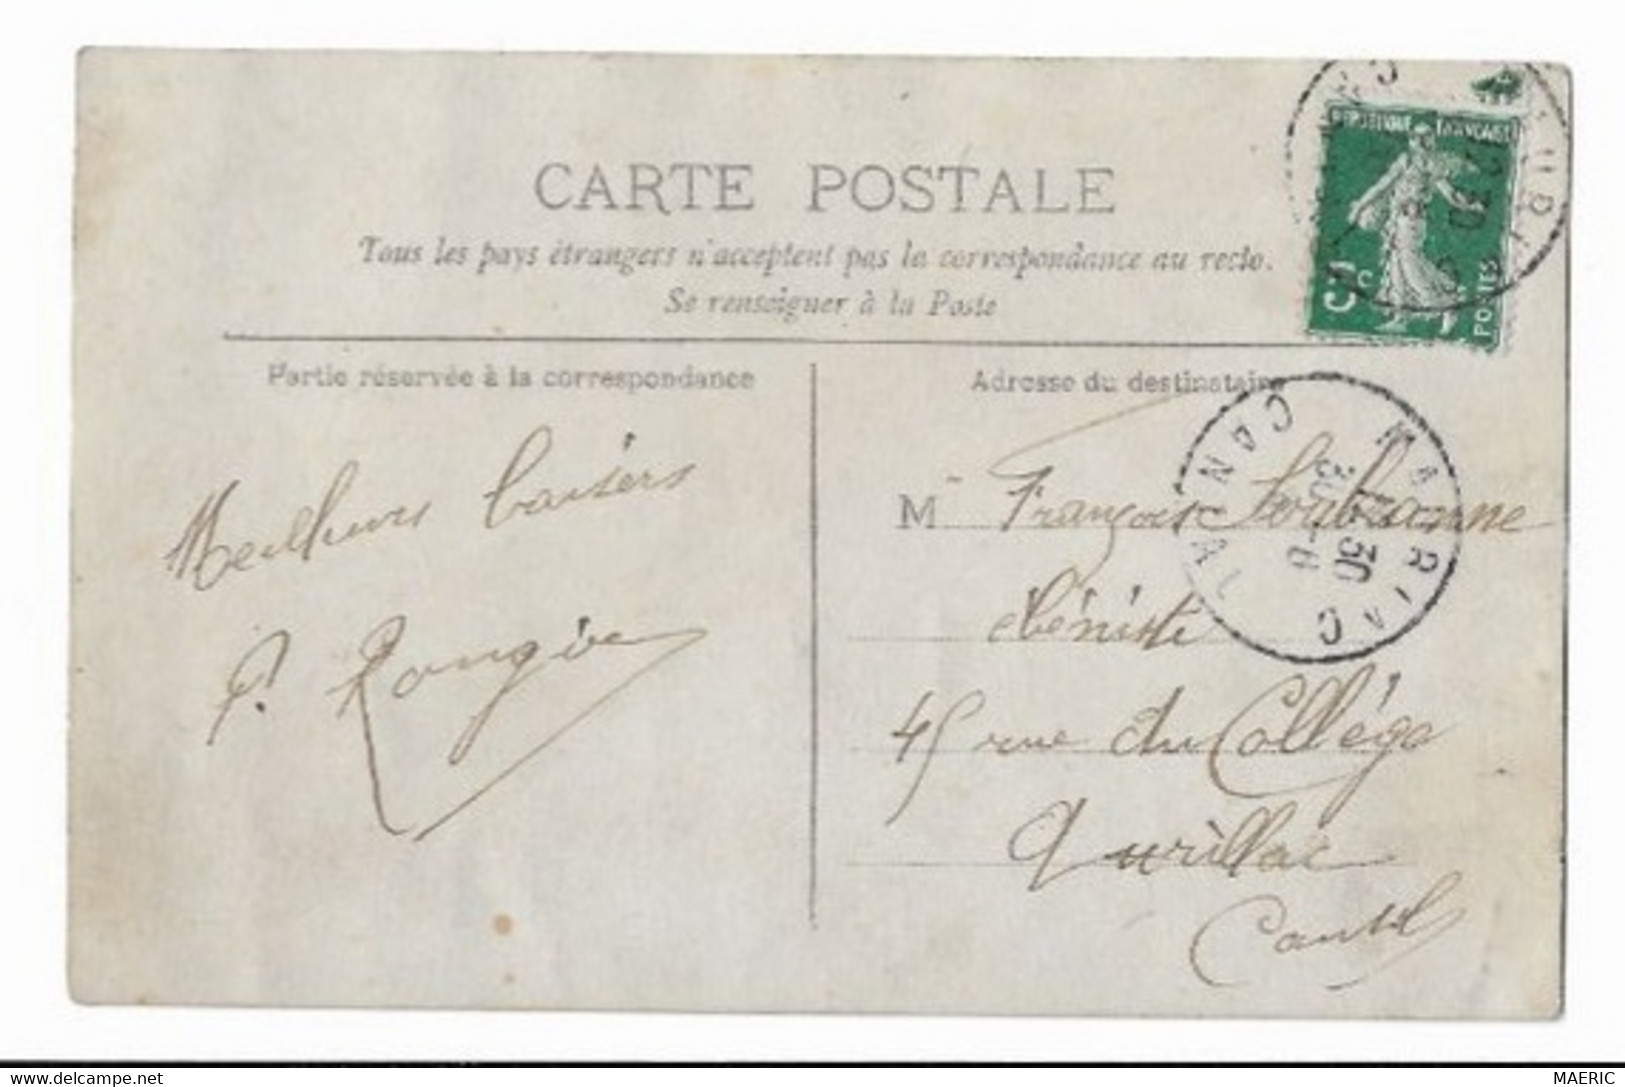 CARTE POSTALE
Tous les pays étrangers n'acceptent pas la correspondance au recto.
Se renseigner à la Poste
REPUBLIQUE FRANÇAISE
5 c
POSTES
Partie réservée à la correspondance
Adresse du destinataire
Meilleurs baisers
P. Rongier
M François Soubranne
ébéniste
45 rue du Collége
Aurillac
Cantal
MARRIAC
CANTAL
12 30
30 -6
MAERIC